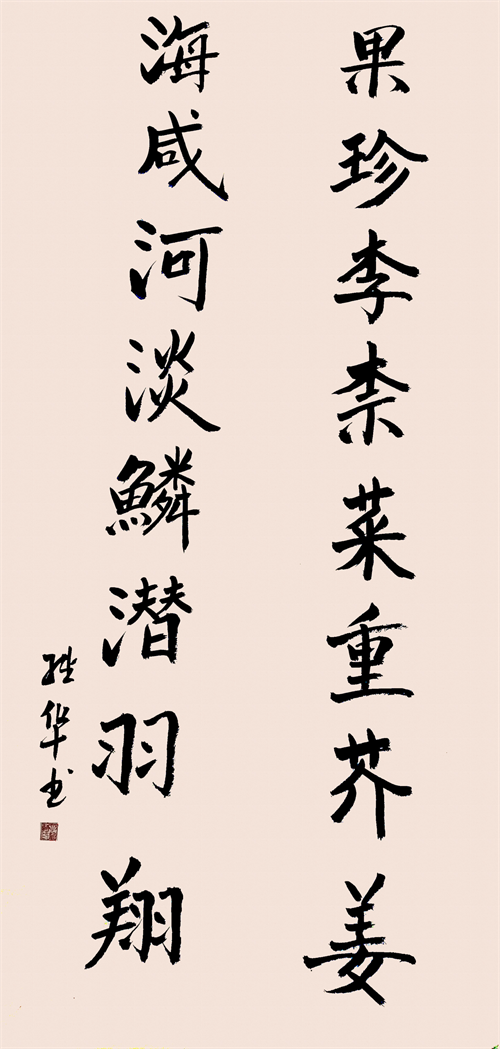 果珍李柰菜重芥姜
海咸河淡鱗潜羽翔
华书